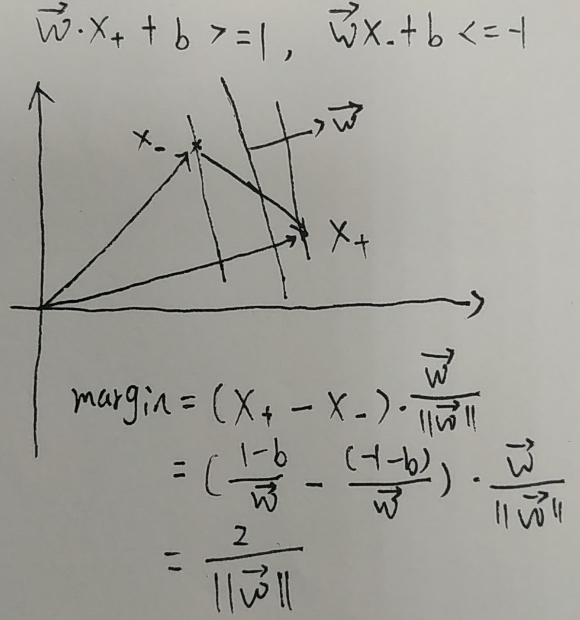 $\vec{w} \cdot x_+ + b >= 1, \quad \vec{w} x_- + b <= -1$
$x_-$
$\vec{w}$
$x_+$
$margin = (x_+ - x_-) \cdot \frac{\vec{w}}{||\vec{w}||}$
$= (\frac{1-b}{\vec{w}} - \frac{(-1-b)}{\vec{w}}) \cdot \frac{\vec{w}}{||\vec{w}||}$
$= \frac{2}{||\vec{w}||}$